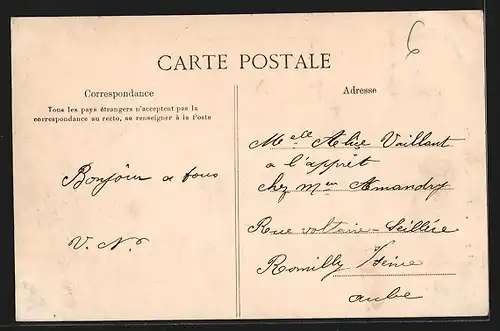 6
CARTE POSTALE
Correspondance
Tous les pays étrangers n'acceptent pas la
correspondance au recto, se renseigner à la Poste
Bonjour a tous
V. N.
Adresse
Melle Alice Vaillant
a l'apprêt
chez meur Amandry
Rue voltaire - Seillère
Romilly s/seine
aube